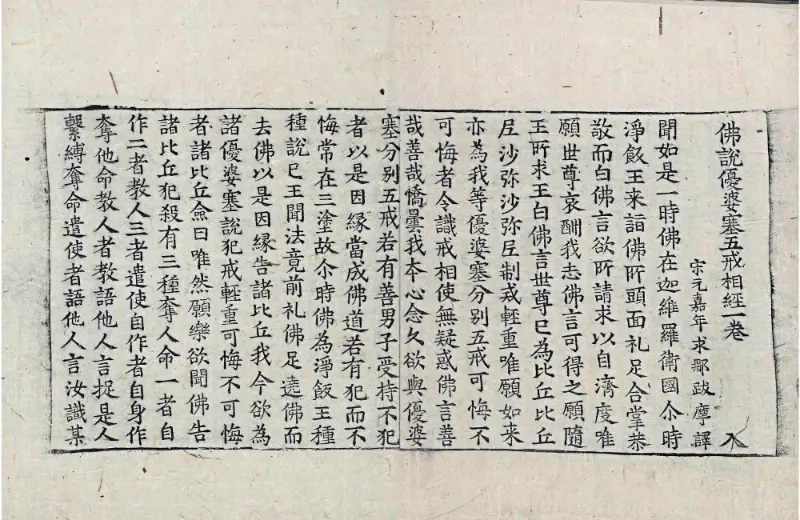 佛說優婆塞五戒相經一卷 入
宋元嘉年求那跋摩譯
聞如是一時佛在迦維羅衛國尒時
淨飯王來詣佛所頭面礼足合掌恭
敬而白佛言欲所請求以自濟度唯
願世尊哀酬我志佛言可得之願隨
王所求王白佛言世尊已為比丘比丘
尼沙弥沙弥尼制戒輕重唯願如来
亦為我等優婆塞分別五戒可悔不
可悔者令識戒相使無疑惑佛言善
哉善哉憍曇我本心念久欲與優婆
塞分別五戒若有善男子受持不犯
者以是因緣當成佛道若有犯而不
悔常在三塗故尒時佛為淨飯王種
種說已王聞法竟前礼佛足遶佛而
去佛以是因緣告諸比丘我今欲為
諸優婆塞說犯戒輕重可悔不可悔
者諸比丘僉曰唯然願樂欲聞佛告
諸比丘犯殺有三種奪人命一者自
作二者教人三者遣使自作者自身作
奪他命教人者教語他人言捉是人
繫縛奪命遣使者語他人言汝識某